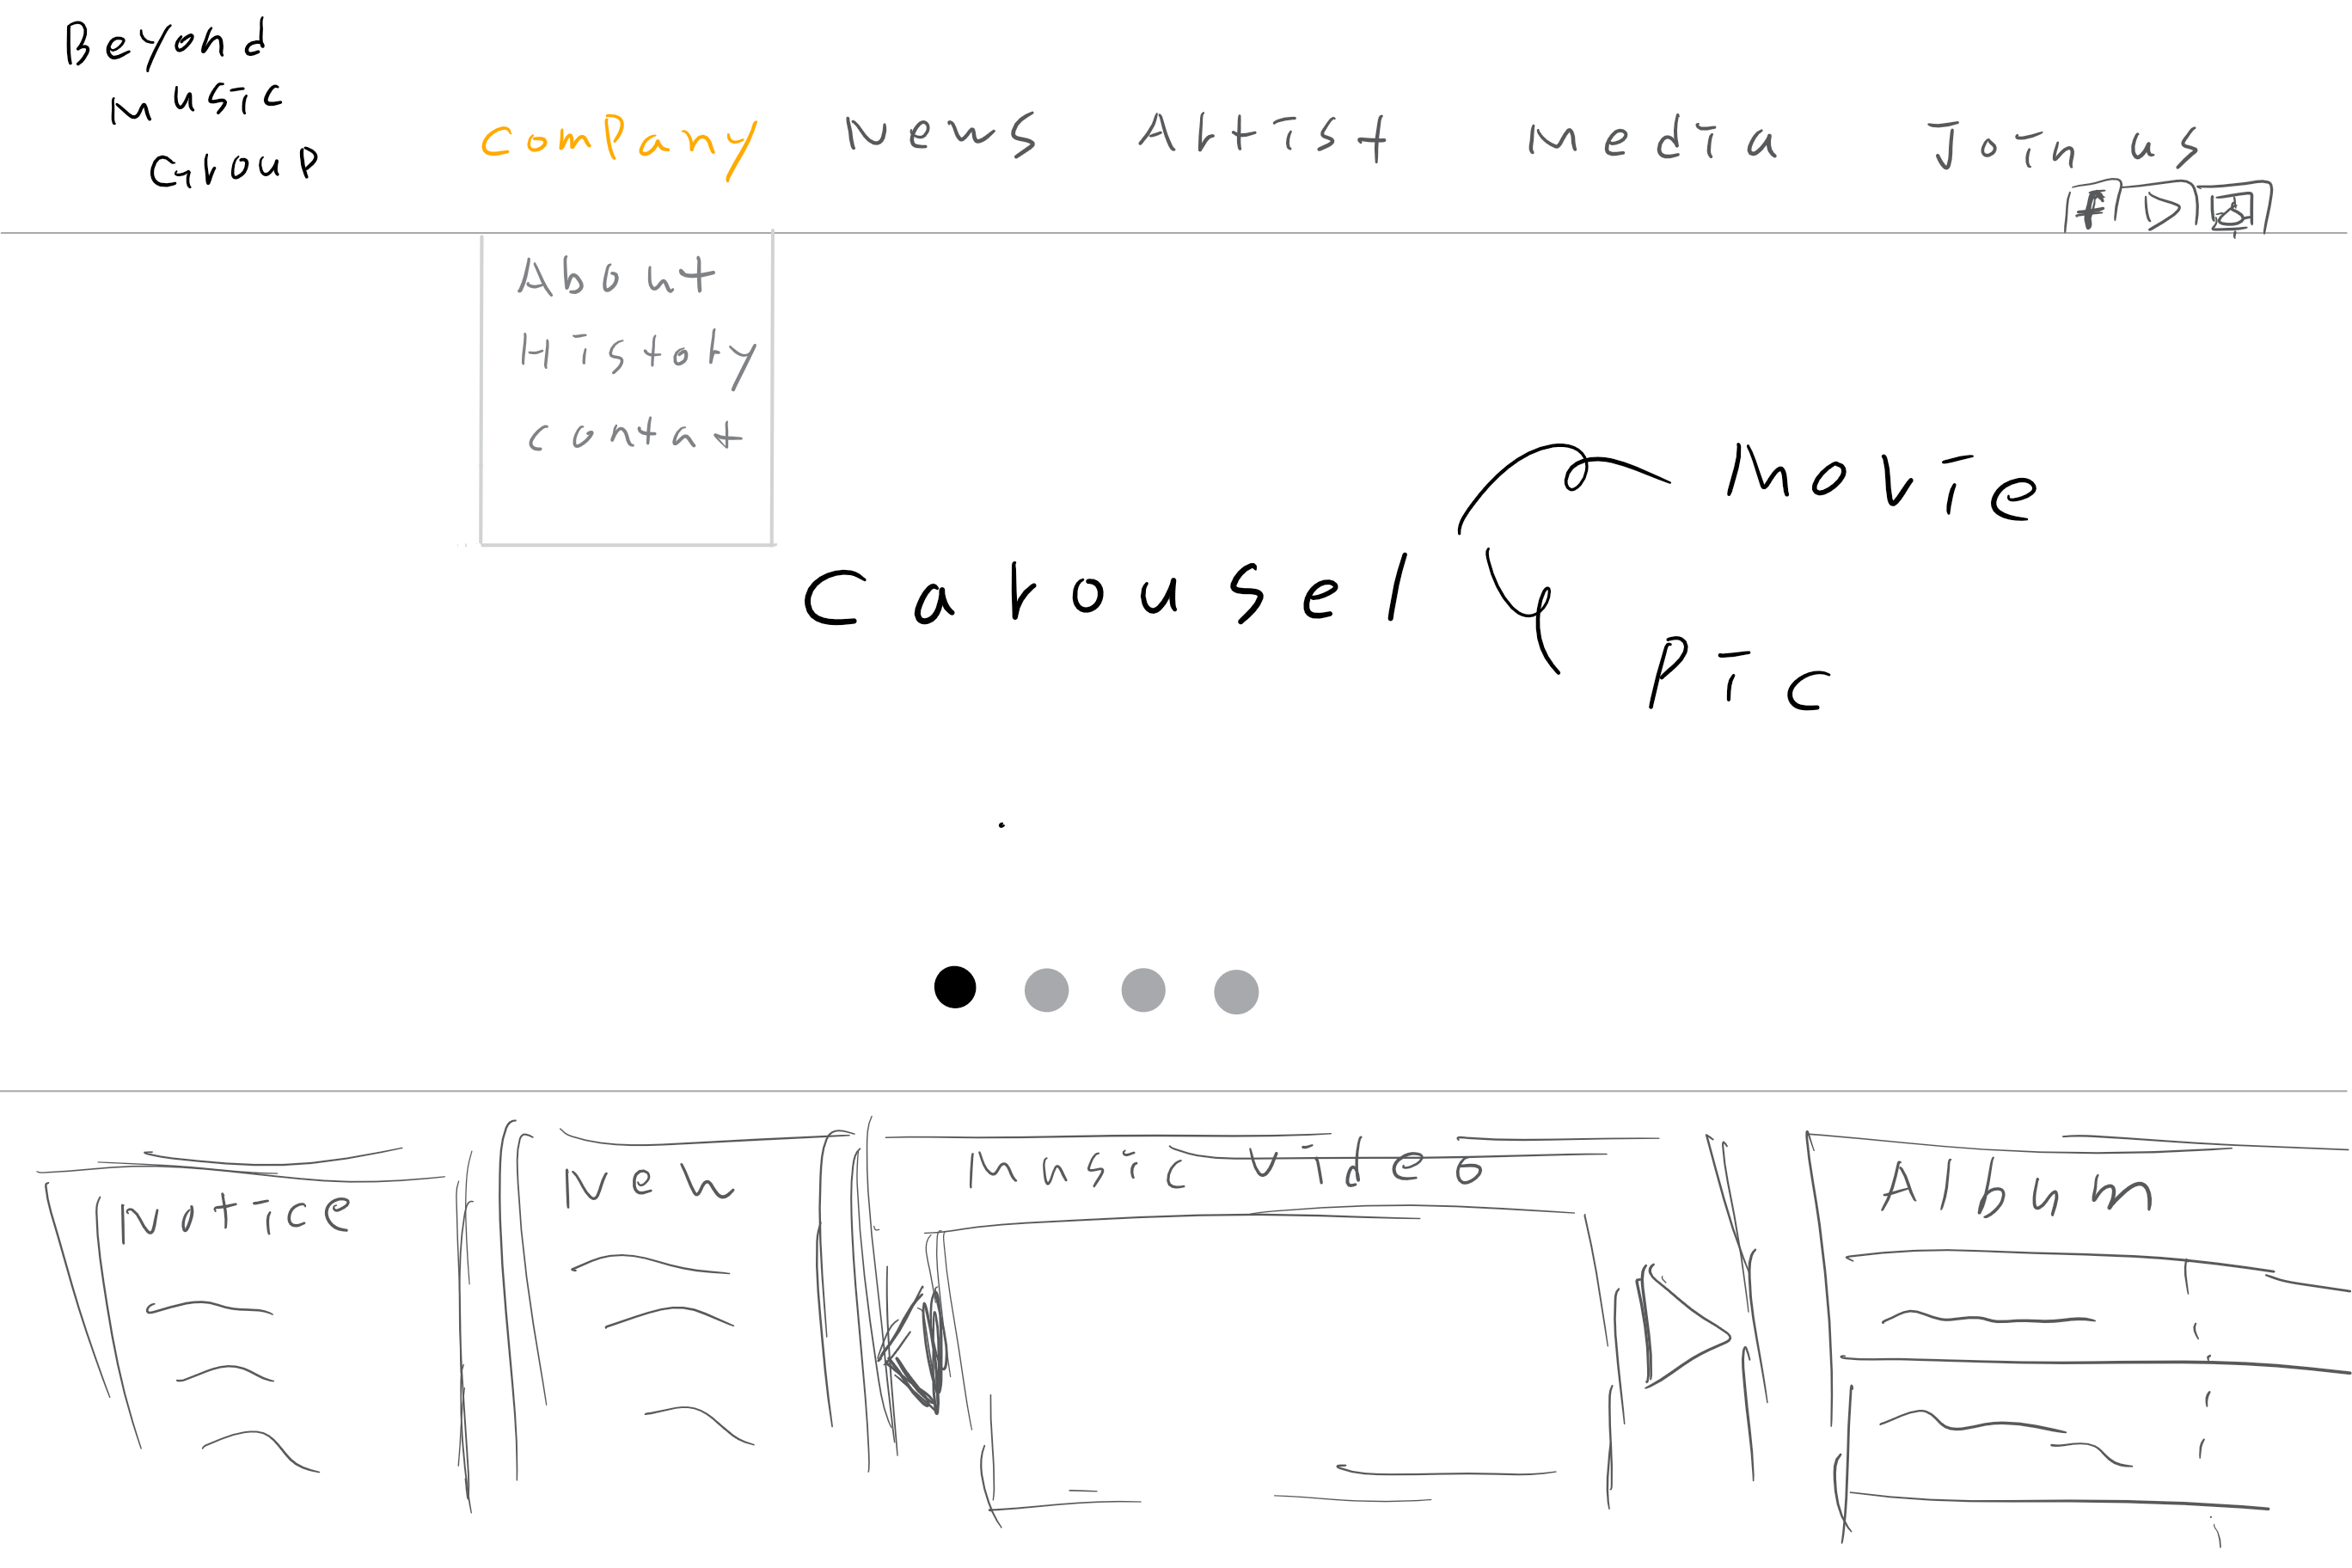 Beyond
Music
Group
Company News Artist Media Join us
About
History
contat
Movie
Carousel
Pic
Notice New Music Video Album